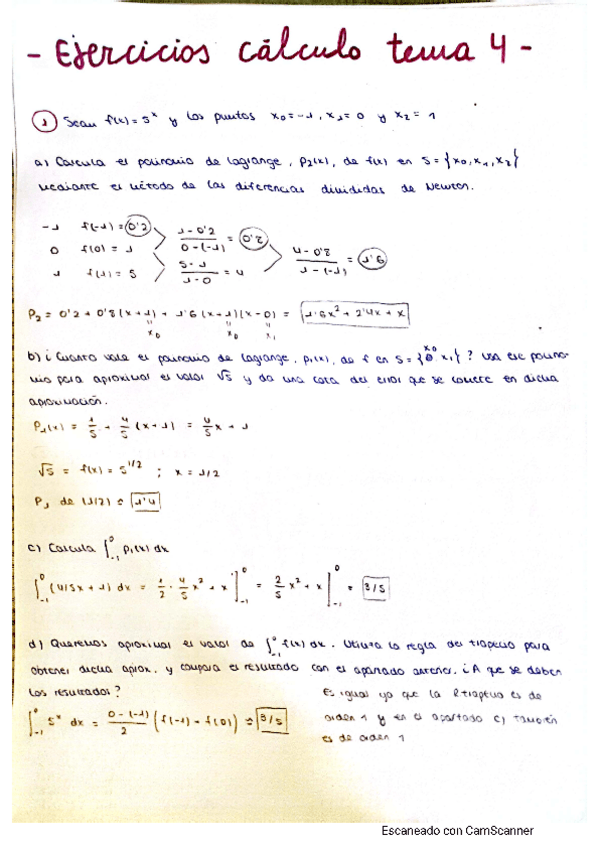 - Ejercicios cálculo tema 4 -
1 Sean f(x) = 5^x y los puntos x₀ = -1, x₁ = 0 y x₂ = 1
a) Calcula el polinomio de Lagrange, P₂(x), de f(x) en S = {x₀, x₁, x₂}
mediante el método de las diferencias divididas de Newton.
-1 f(-1) = 0'2
0 f(0) = 1
1 f(1) = 5
(1 - 0'2)/(0 - (-1)) = 0'8
(5 - 1)/(1 - 0) = 4
(4 - 0'8)/(1 - (-1)) = 1'6
P₂ = 0'2 + 0'8(x+1) + 1'6(x+1)(x-0) = 1'6x² + 2'4x + x
x₀ x₀ x₁
b) ¿Cuanto vale el polinomio de Lagrange, P₁(x), de f en S = {x₀, x₁}? Usa ese polino-
mio para aproximar el valor √5 y da una cota del error que se comete en dicha
aproximación.
P₁(x) = 1/5 + 4/5 (x+1) = 4/5 x + 1
√5 = f(x) = 5^(1/2) ; x = 1/2
P₁ de (1/2) = 1'4
c) Calcula ∫₋₁⁰ P₁(x) dx
∫₋₁⁰ (4/5x + 1) dx = 1/2 · 4/5 x² + x ]₋₁⁰ = 2/5 x² + x ]₋₁⁰ = 3/5
d) Queremos aproximar el valor de ∫₋₁⁰ f(x) dx. Utiliza la regla del trapecio para
obtener dicha aprox. y compara el resultado con el apartado anterior. ¿A que se deben
los resultados?
∫₋₁⁰ 5^x dx = (0 - (-1))/2 (f(-1) + f(0)) = 3/5
Es igual ya que la R trapecio es de
orden 1 y en el apartado c) también
es de orden 1
Escaneado con CamScanner